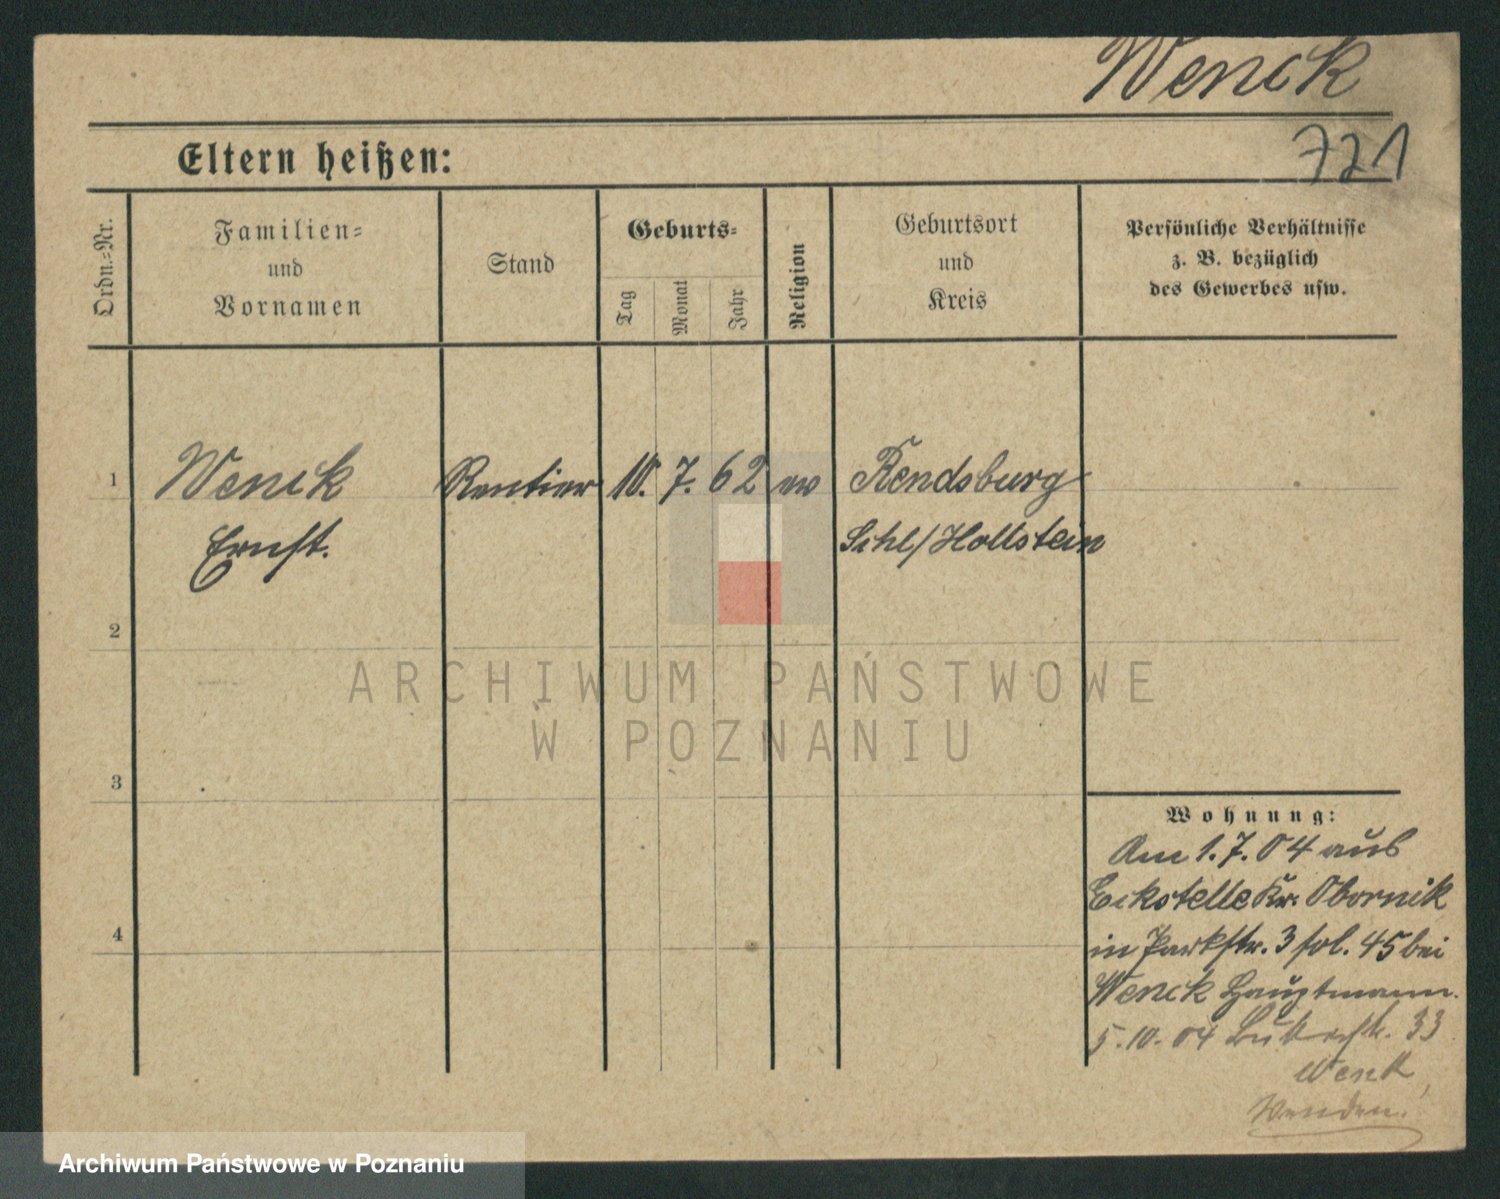 Wenck
721
Eltern heißen:
Ordn.-Nr.
Familien-
und
Vornamen
Stand
Geburts-
Tag
Monat
Jahr
Religion
Geburtsort
und
Kreis
Persönliche Verhältnisse
z. B. bezüglich
des Gewerbes usw.
1 Wenck Rentier 10. 7. 62 ev Rendsburg
Ernst. Schl/Hollstein
2
3
4
Wohnung:
Am 1.7.04 aus
Eckstelle Kr. Obornik
in Parkstr. 3 sol. 45 bei
Wenck Hauptmann.
5.10.04 33
Wenck
Wenden!
ARCHIWUM PAŃSTWOWE
W POZNANIU
Archiwum Państwowe w Poznaniu